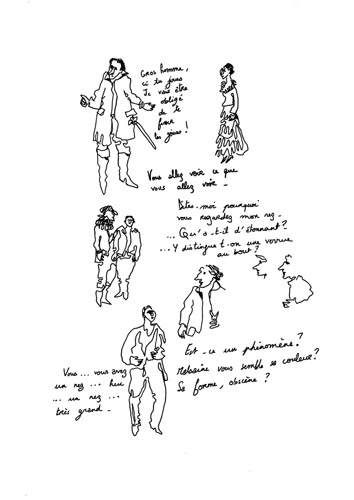 Gros homme,
si tu joues
Je vais être
obligé
de te
fesser
les joues !
Vous allez voir ce que
vous allez voir _
Dites-moi pourquoi
vous regardez mon nez _
... Qu'a-t-il d'étonnant ?
... Y distingue t-on une verrue
au bout ?
Est-ce un phénomène ?
Malsaine vous semble sa couleur ?
Sa forme, obscène ?
Vous ... vous avez
un nez ... heu
... un nez ...
très grand _